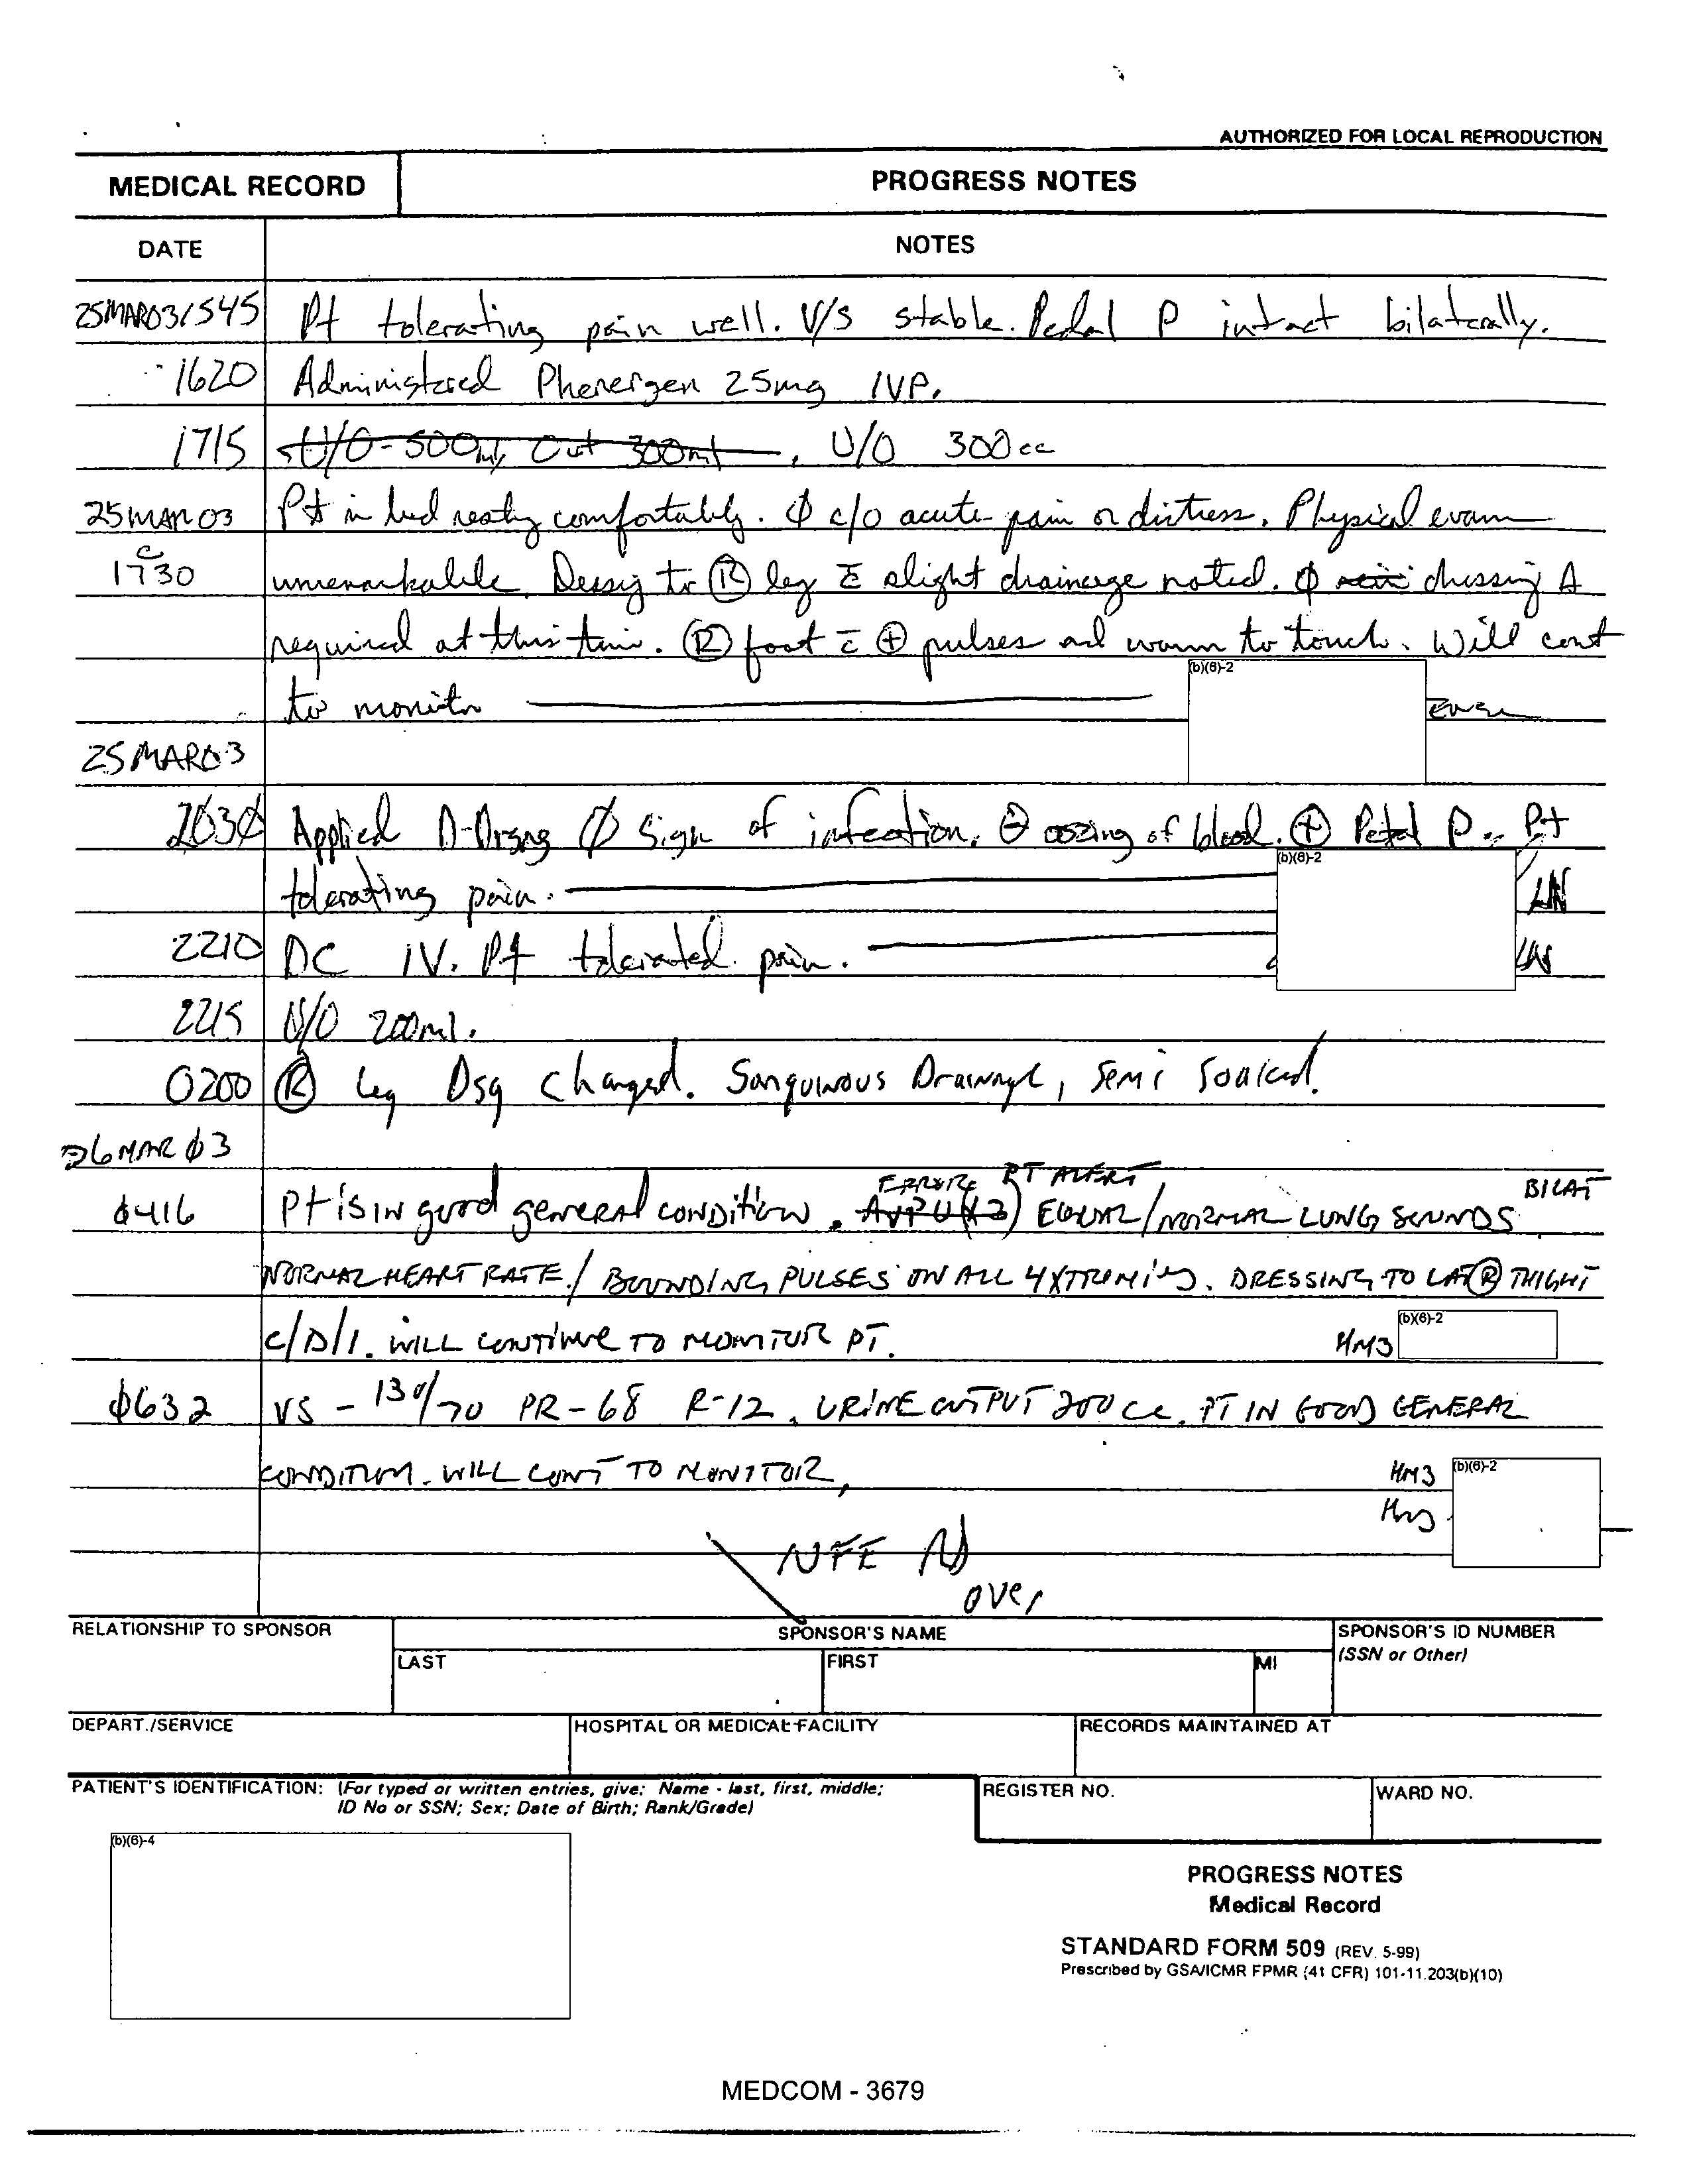 AUTHORIZED FOR LOCAL REPRODUCTION
MEDICAL RECORD PROGRESS NOTES
DATE NOTES
25MAR03/1545 Pt tolerating pain well. V/S stable. Pedal P intact bilaterally.
1620 Administered Phenergen 25mg IVP.
1715 U/O-500ml, Out 300ml, U/O 300cc
25MAR03 Pt in bed resting comfortably. ϕ c/o acute pain or distress. Physical exam
c̄
1730 unremarkable. Dessig to Ⓡ leg c̄ slight drainage noted. ϕ dressing Δ
required at this time. Ⓡ foot c̄ ⊕ pulses and warm to touch. Will cont
(b)(6)-2
to monitor
25MAR03
2030 Applied D-Drsng ϕ sign of infection. ⊖ oozing of blood. ⊕ Pedal P.. Pt
(b)(6)-2
tolerating pain. LN
2210 DC IV. Pt tolerated pain. LN
2215 U/O 200ml.
0200 Ⓡ Leg Dsg changed. Sanguinous Drainage, semi soaked.
26MAR03
ERROR PT ALERT BILAT
0416 Pt is in good general condition. AVPU(x3) EQUAL/NORMAL LUNG SOUNDS
NORMAL HEART RATE./ BOUNDING PULSES ON ALL 4 XTREMIES. DRESSING TO LAT Ⓡ THIGHT
C/D/I. WILL CONTINUE TO MONITOR PT. HM3 (b)(6)-2
0632 VS - 130/70 PR-68 R-12. URINE OUTPUT 200cc. PT IN GOOD GENERAL
CONDITION. WILL CONT TO MONITOR, HM3 (b)(6)-2
HM3
NFE
over
RELATIONSHIP TO SPONSOR SPONSOR'S NAME SPONSOR'S ID NUMBER
LAST FIRST MI (SSN or Other)
DEPART./SERVICE HOSPITAL OR MEDICAL FACILITY RECORDS MAINTAINED AT
PATIENT'S IDENTIFICATION: (For typed or written entries, give: Name - last, first, middle; REGISTER NO. WARD NO.
ID No or SSN; Sex; Date of Birth; Rank/Grade)
(b)(6)-4
PROGRESS NOTES
Medical Record
STANDARD FORM 509 (REV. 5-99)
Prescribed by GSA/ICMR FPMR (41 CFR) 101-11.203(b)(10)
MEDCOM - 3679